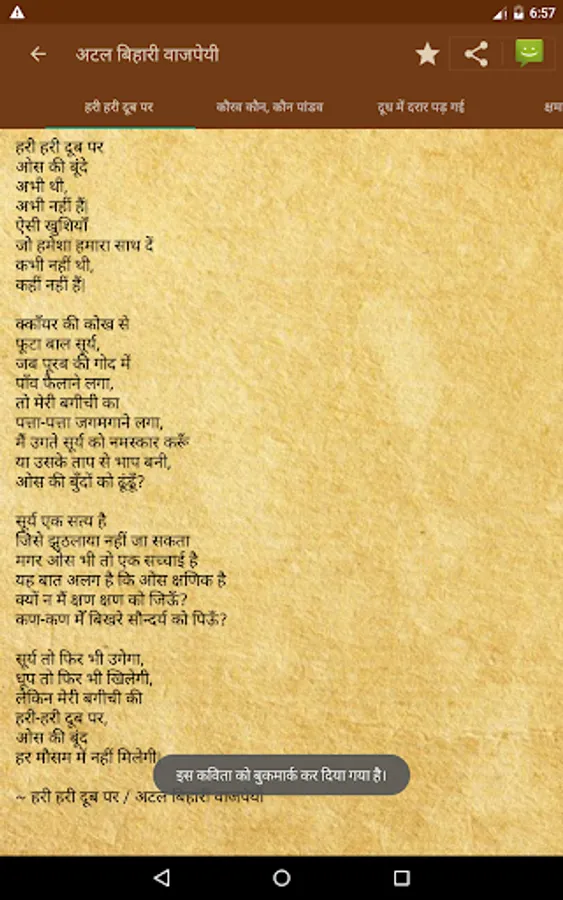 6:57
अटल बिहारी वाजपेयी
हरी हरी दूब पर
कौरव कौन, कौन पांडव
दूध में दरार पड़ गई
क्षम
हरी हरी दूब पर
ओस की बूंदे
अभी थी,
अभी नहीं हैं|
ऐसी खुशियाँ
जो हमेशा हमारा साथ दें
कभी नहीं थी,
कहीं नहीं हैं|
क्काँयर की कोख से
फूटा बाल सूर्य,
जब पूरब की गोद में
पाँव फैलाने लगा,
तो मेरी बगीची का
पत्ता-पत्ता जगमगाने लगा,
मैं उगते सूर्य को नमस्कार करूँ
या उसके ताप से भाप बनी,
ओस की बुँदों को ढूंढूँ?
सूर्य एक सत्य है
जिसे झुठलाया नहीं जा सकता
मगर ओस भी तो एक सच्चाई है
यह बात अलग है कि ओस क्षणिक है
क्यों न मैं क्षण क्षण को जिऊँ?
कण-कण मेँ बिखरे सौन्दर्य को पिऊँ?
सूर्य तो फिर भी उगेगा,
धूप तो फिर भी खिलेगी,
लेकिन मेरी बगीची की
हरी-हरी दूब पर,
ओस की बूंद
हर मौसम में नहीं मिलेगी
इस कविता को बुकमार्क कर दिया गया है।
~ हरी हरी दूब पर / अटल बिहारी वाजपेयी